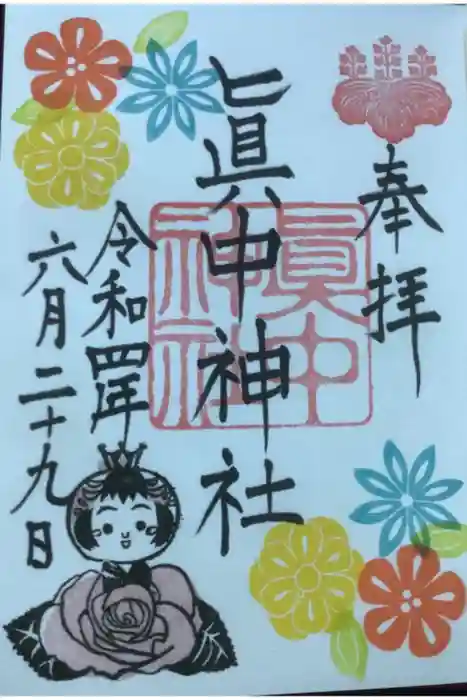 奉拝
眞中神社
眞中
神社
令和四年
六月二十九日